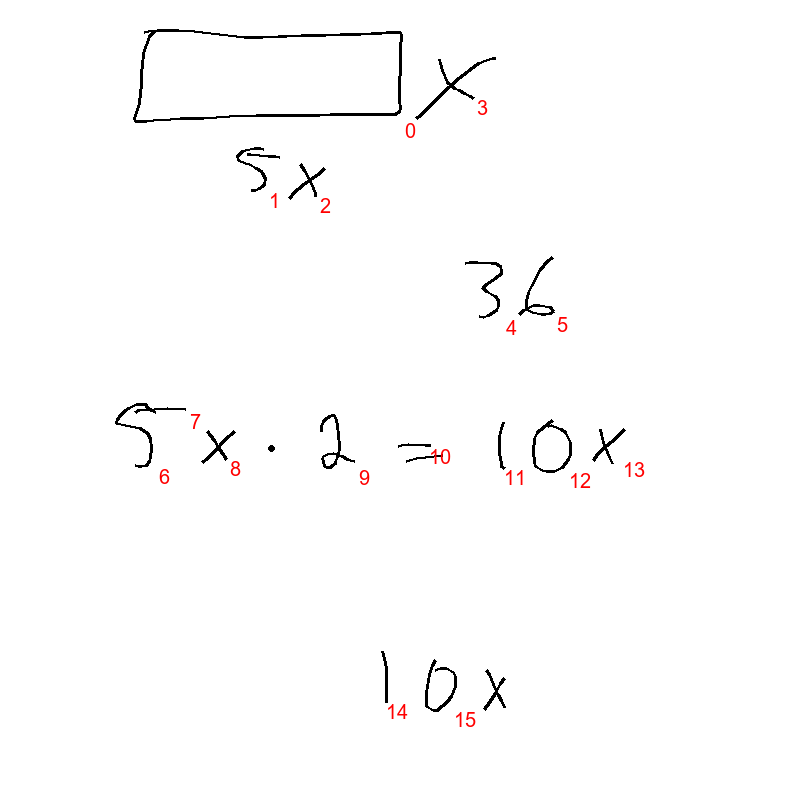 x
0 3
5x
1 2
36
4 5
5x · 2 = 10x
7
6 8 9 10 11 12 13
10x
14 15